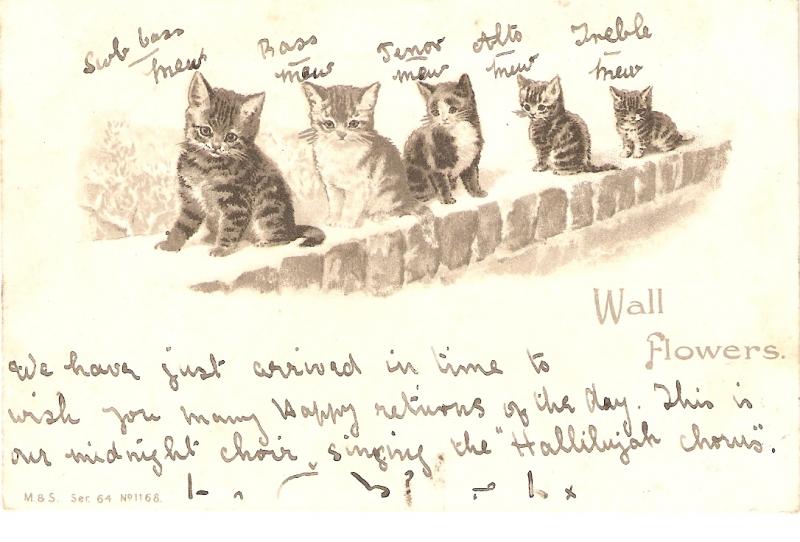 Sub bass mew
Bass mew
Tenor mew
Alto mew
Treble mew
Wall
Flowers.
We have just arrived in time to
wish you many Happy returns of the day. This is
our midnight choir, singing the "Hallilujah chorus".
M & S. Ser. 64 Nº 1168.